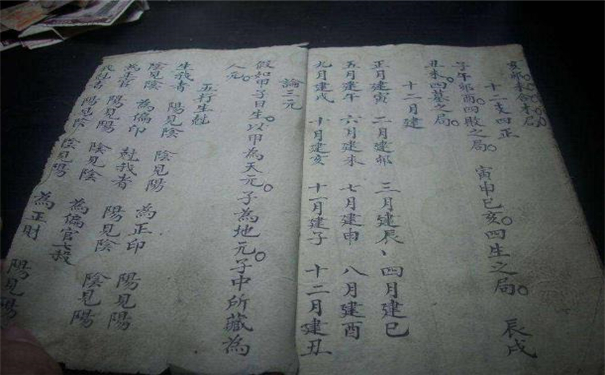 亥卯未合木局
十二支四正
子午卯酉。四敗之局。寅申巳亥。四生之局。辰戌
丑未。四墓之局。
十二月建
正月建寅 二月建卯 三月建辰、四月建巳
五月建午 六月建未 七月建申 八月建酉
九月建戌 十月建亥 十一月建子 十二月建丑
論三元
假如甲子日生。以甲為天元。子為地元。子中所藏為
人元。
五行生尅
生我者 陽見陰 陰見陽 為正印 陽見陽
陰見陰 為偏印 尅我者 陽見陰 陰見陽
為正官 陽見陽 陰見陰 為偏官七殺
我尅者 陽見陰 陰見陽 為正財 陽見陽